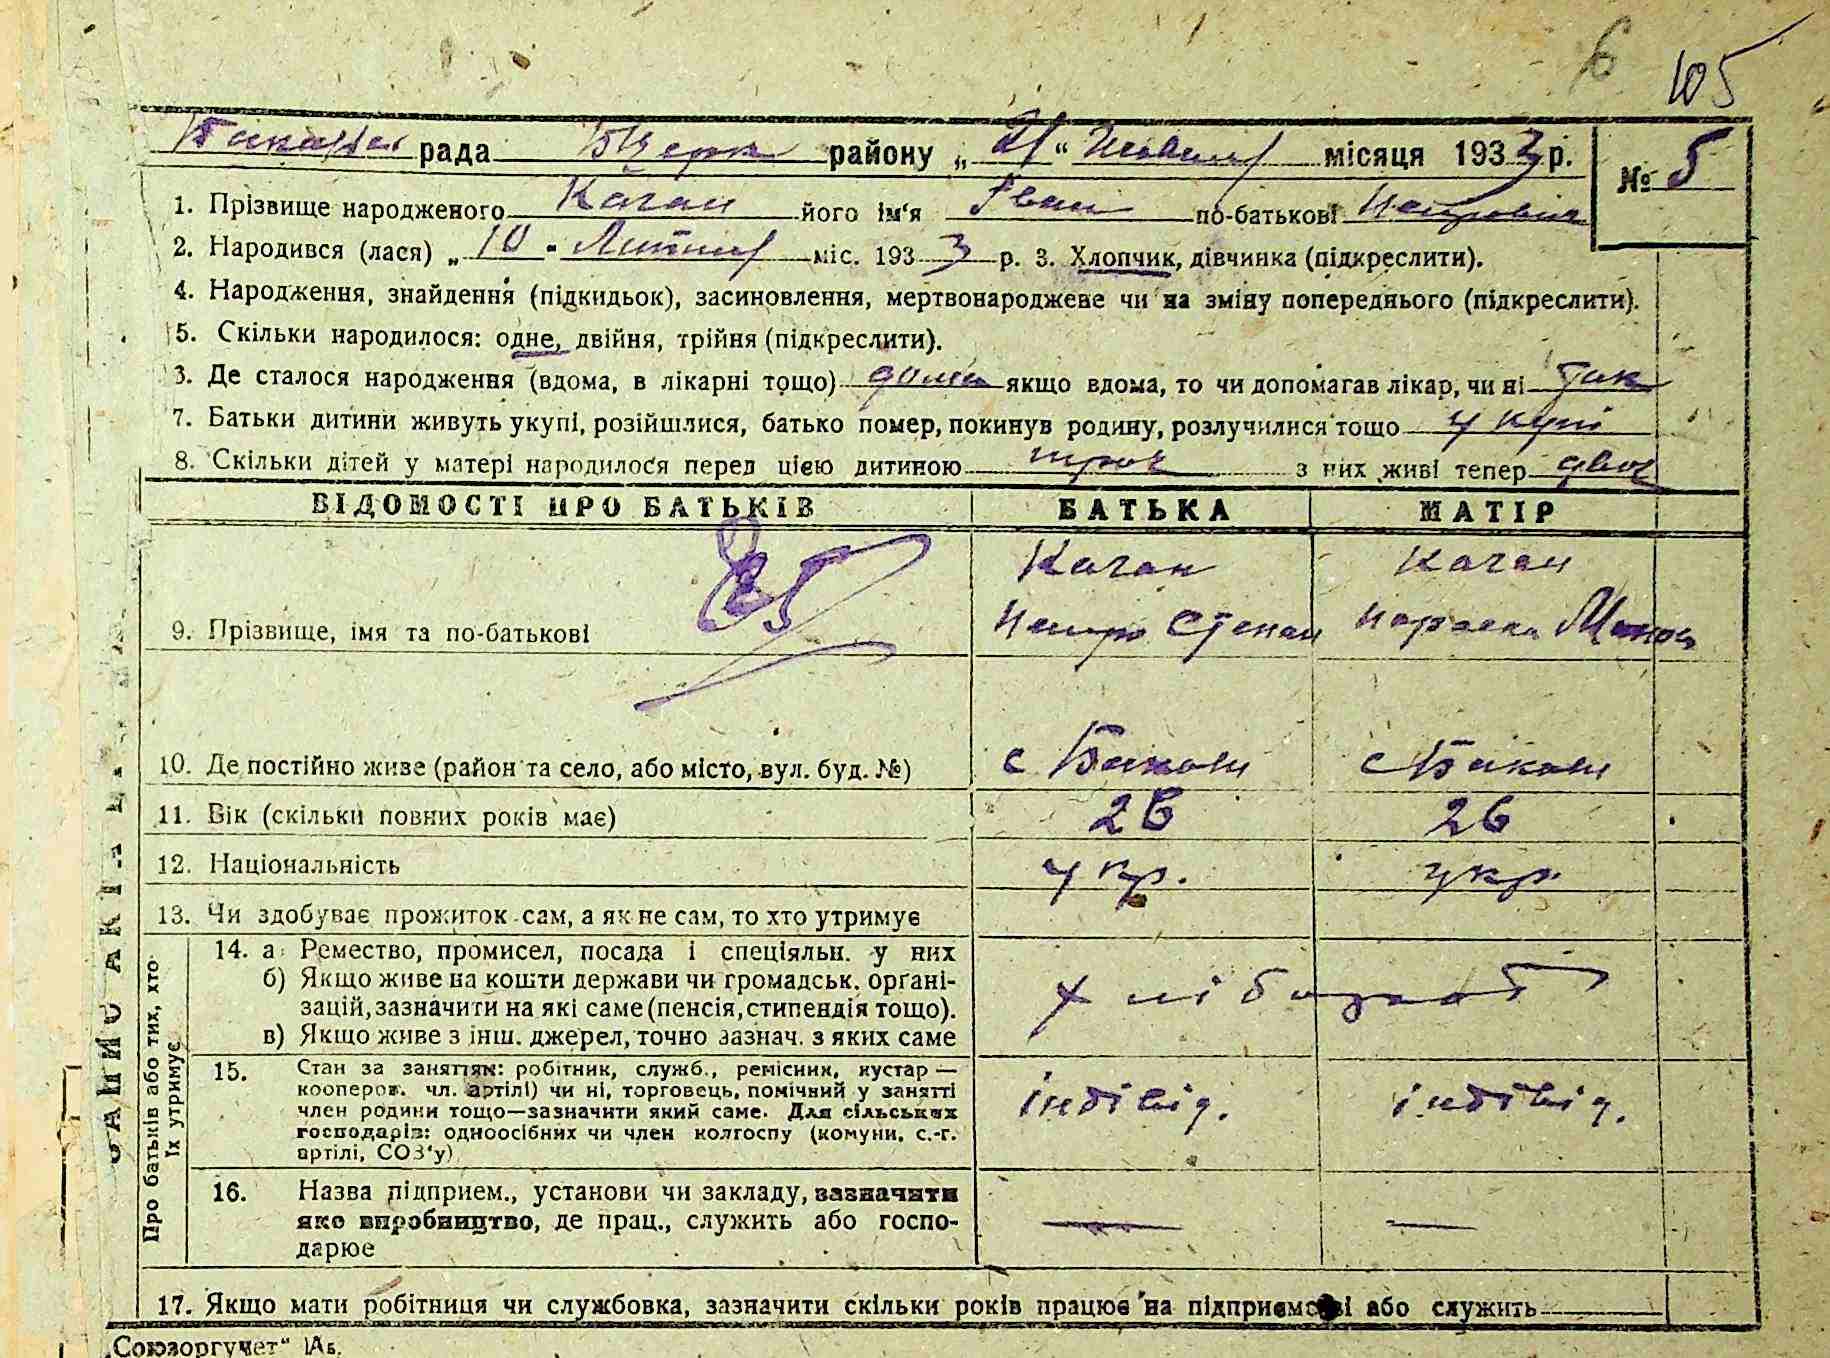 6 105
рада БЦерк району „21“ місяця 1933 р. № 5
1. Прізвище народженого Качан його ім'я Іван по-батькові Петрович
2. Народився (лася) „10 - Лютий міс. 1933 р. 3. Хлопчик, дівчинка (підкреслити).
4. Народження, знайдення (підкидьок), засиновлення, мертвонароджеве чи на зміну попереднього (підкреслити).
5. Скільки народилося: одне, двійня, трійня (підкреслити).
3. Де сталося народження (вдома, в лікарні тощо) дома якщо вдома, то чи допомагав лікар, чи ні так
7. Батьки дитини живуть укупі, розійшлися, батько помер, покинув родину, розлучилися тощо у купі
8. Скільки дітей у матері народилося перед цією дитиною троє з них живі тепер двоє
ВІДОМОСТІ ПРО БАТЬКІВ БАТЬКА МАТІР
85 Качан Качан
9. Прізвище, імя та по-батькові Петро Степан Параска
10. Де постійно живе (район та село, або місто, вул. буд. №) с с
11. Вік (скільки повних років має) 26 26
12. Національність укр. укр.
13. Чи здобуває прожиток сам, а як не сам, то хто утримує
Про батьків або тих, хто їх утримує
14. а Ремество, промисел, посада і спеціяльн. у них
б) Якщо живе на кошти держави чи громадськ. органі-
зацій, зазначити на які саме (пенсія, стипендія тощо). хлібороб
в) Якщо живе з інш. джерел, точно зазнач. з яких саме
15. Стан за заняттям: робітник, служб., ремісник, кустар —
кооперов. чл. артілі) чи ні, торговець, помічний у занятті
член родини тощо—зазначити який саме. Для сільських індівід. індівід.
господарів: одноосібних чи член колгоспу (комуни, с.-г.
артілі, СОЗ'у)
16. Назва підприєм., установи чи закладу, зазначити
яке виробництво, де прац., служить або госпо-
дарює
17. Якщо мати робітниця чи службовка, зазначити скільки років працює на підприємстві або служить
„Союзоргучет“